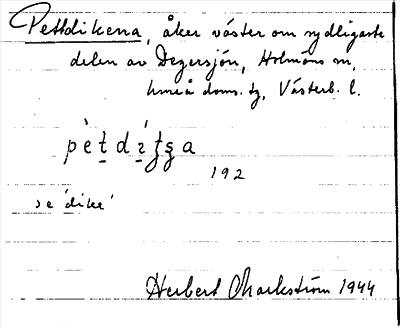 Pettdikena, åker väster om sydligaste
delen av Degersjön, Holmöns sn,
Umeå doms. tg, Västerb. l.
192
se 'dike'
Herbert Markström 1944